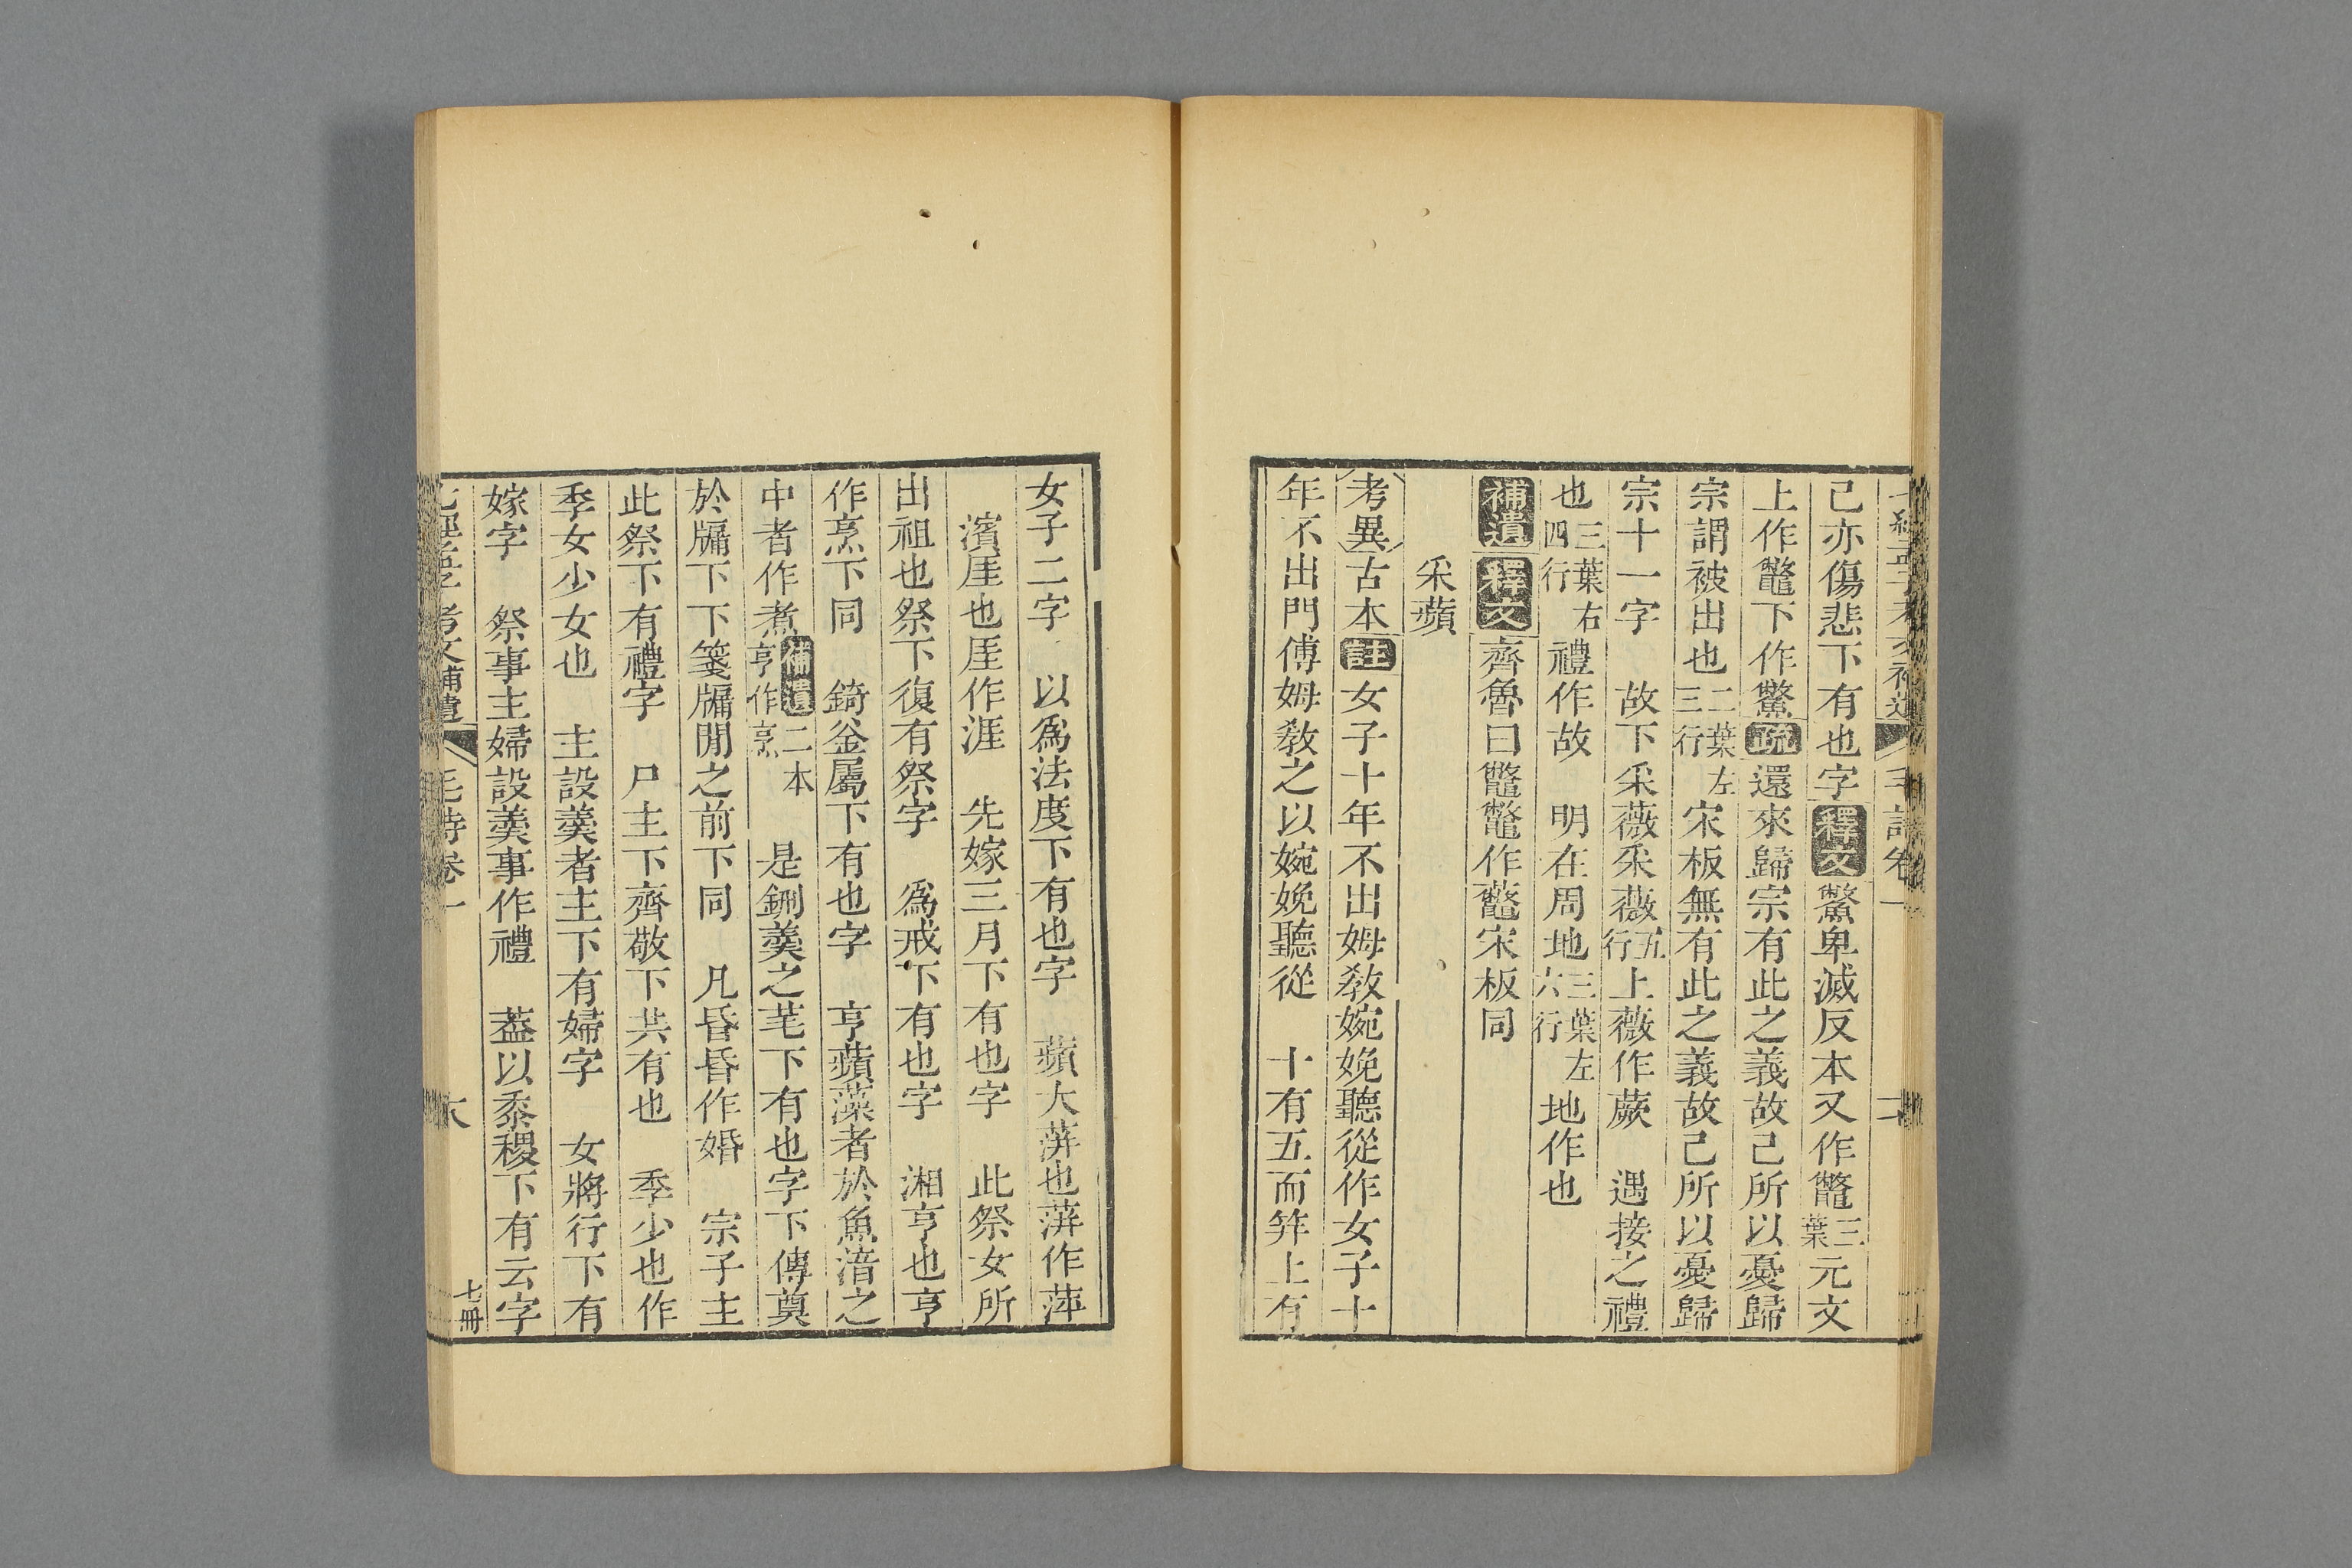 己亦傷悲下有也字釋文鷩卑滅反本又作鼈三葉元文
上作鼈下作鷩疏還來歸宗有此之義故己所以憂歸
宗謂被出也二葉左三行宋板無有此之義故己所以憂歸
宗十一字　故下采薇采薇五行上薇作蕨　遇接之禮
也三葉右四行禮作故　明在周地三葉左六行地作也
補遺釋文齊魯曰鼈鼈作虌宋板同
采蘋
考異古本註女子十年不出姆敎婉娩聽從作女子十
年不出門傅姆敎之以婉娩聽從　十有五而笄上有
女子二字　以爲法度下有也字　蘋大蓱也蓱作萍
濱厓也厓作涯　先嫁三月下有也字　此祭女所
出祖也祭下復有祭字　爲戒下有也字　湘亨也亨
作烹下同　錡釜屬下有也字　亨蘋藻者於魚湆之
中者作煮補遺二本亨作烹　是鉶羹之芼下有也字下傳奠
於牖下下箋牖閒之前下同　凡昏昏作婚　宗子主
此祭下有禮字　尸主下齊敬下共有也　季少也作
季女少女也　主設羹者主下有婦字　女將行下有
嫁字　祭事主婦設羹事作禮　葢以黍稷下有云字
考文補遺　毛詩卷一　六　七冊